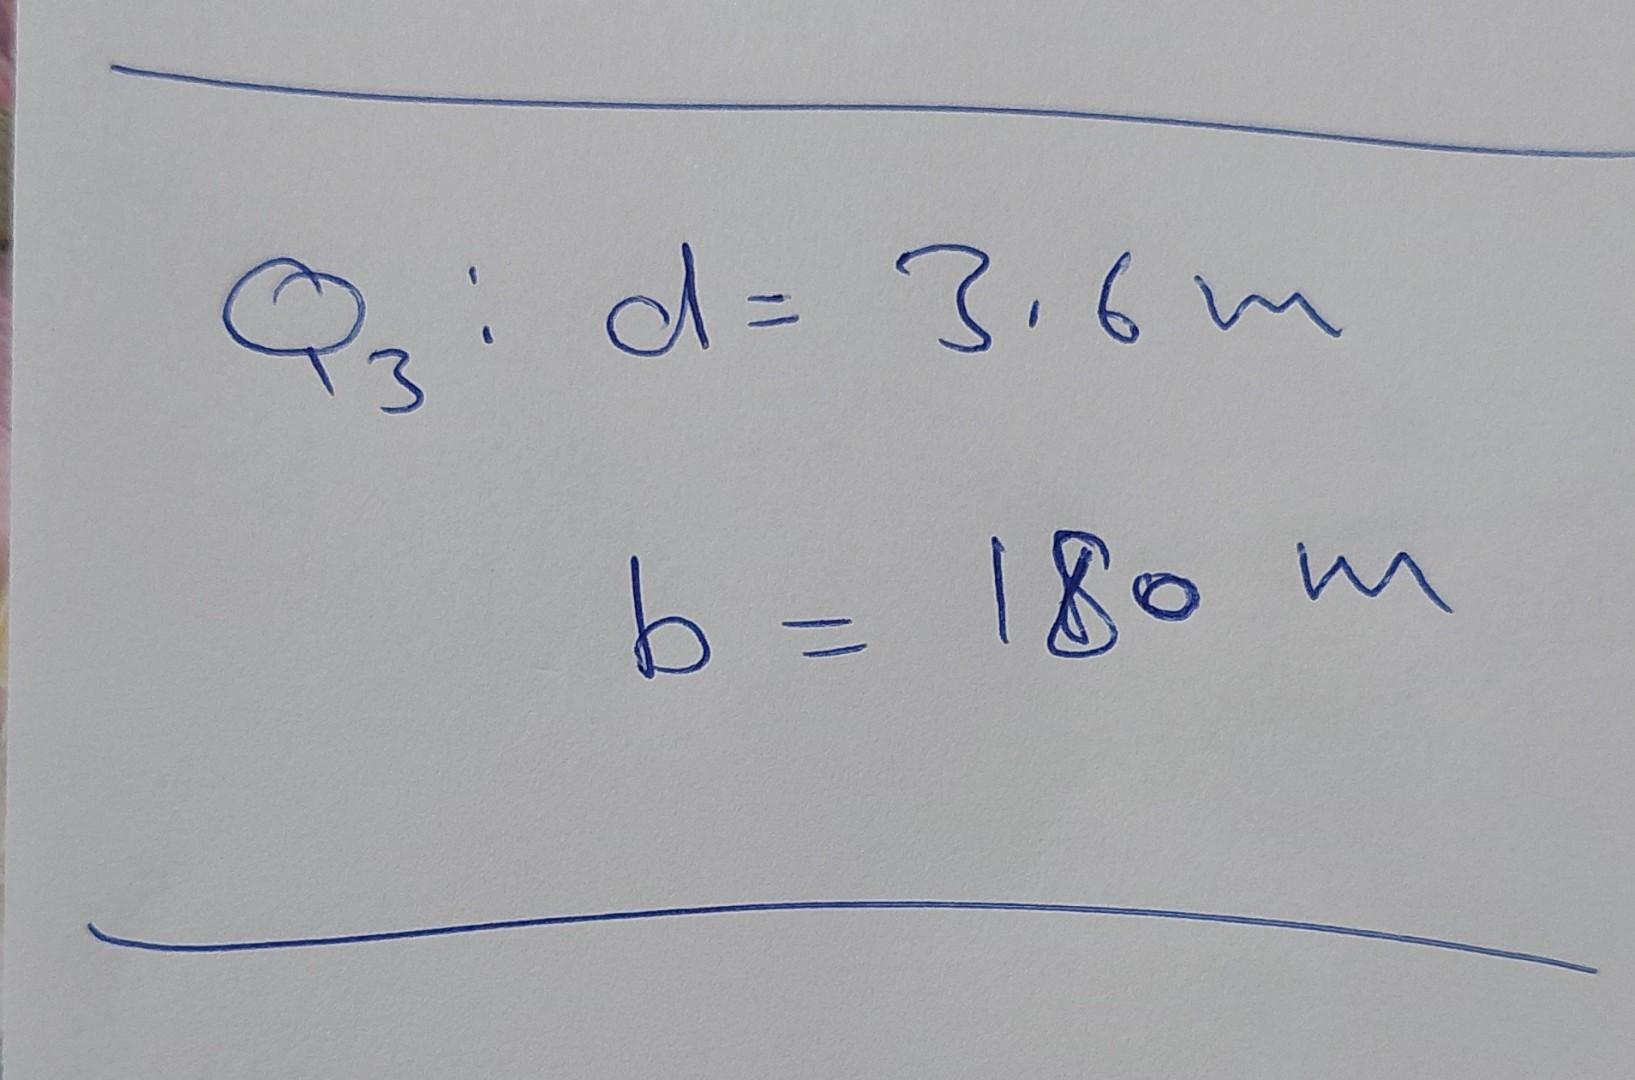 Q3: d= 3.6 m
b = 180 m